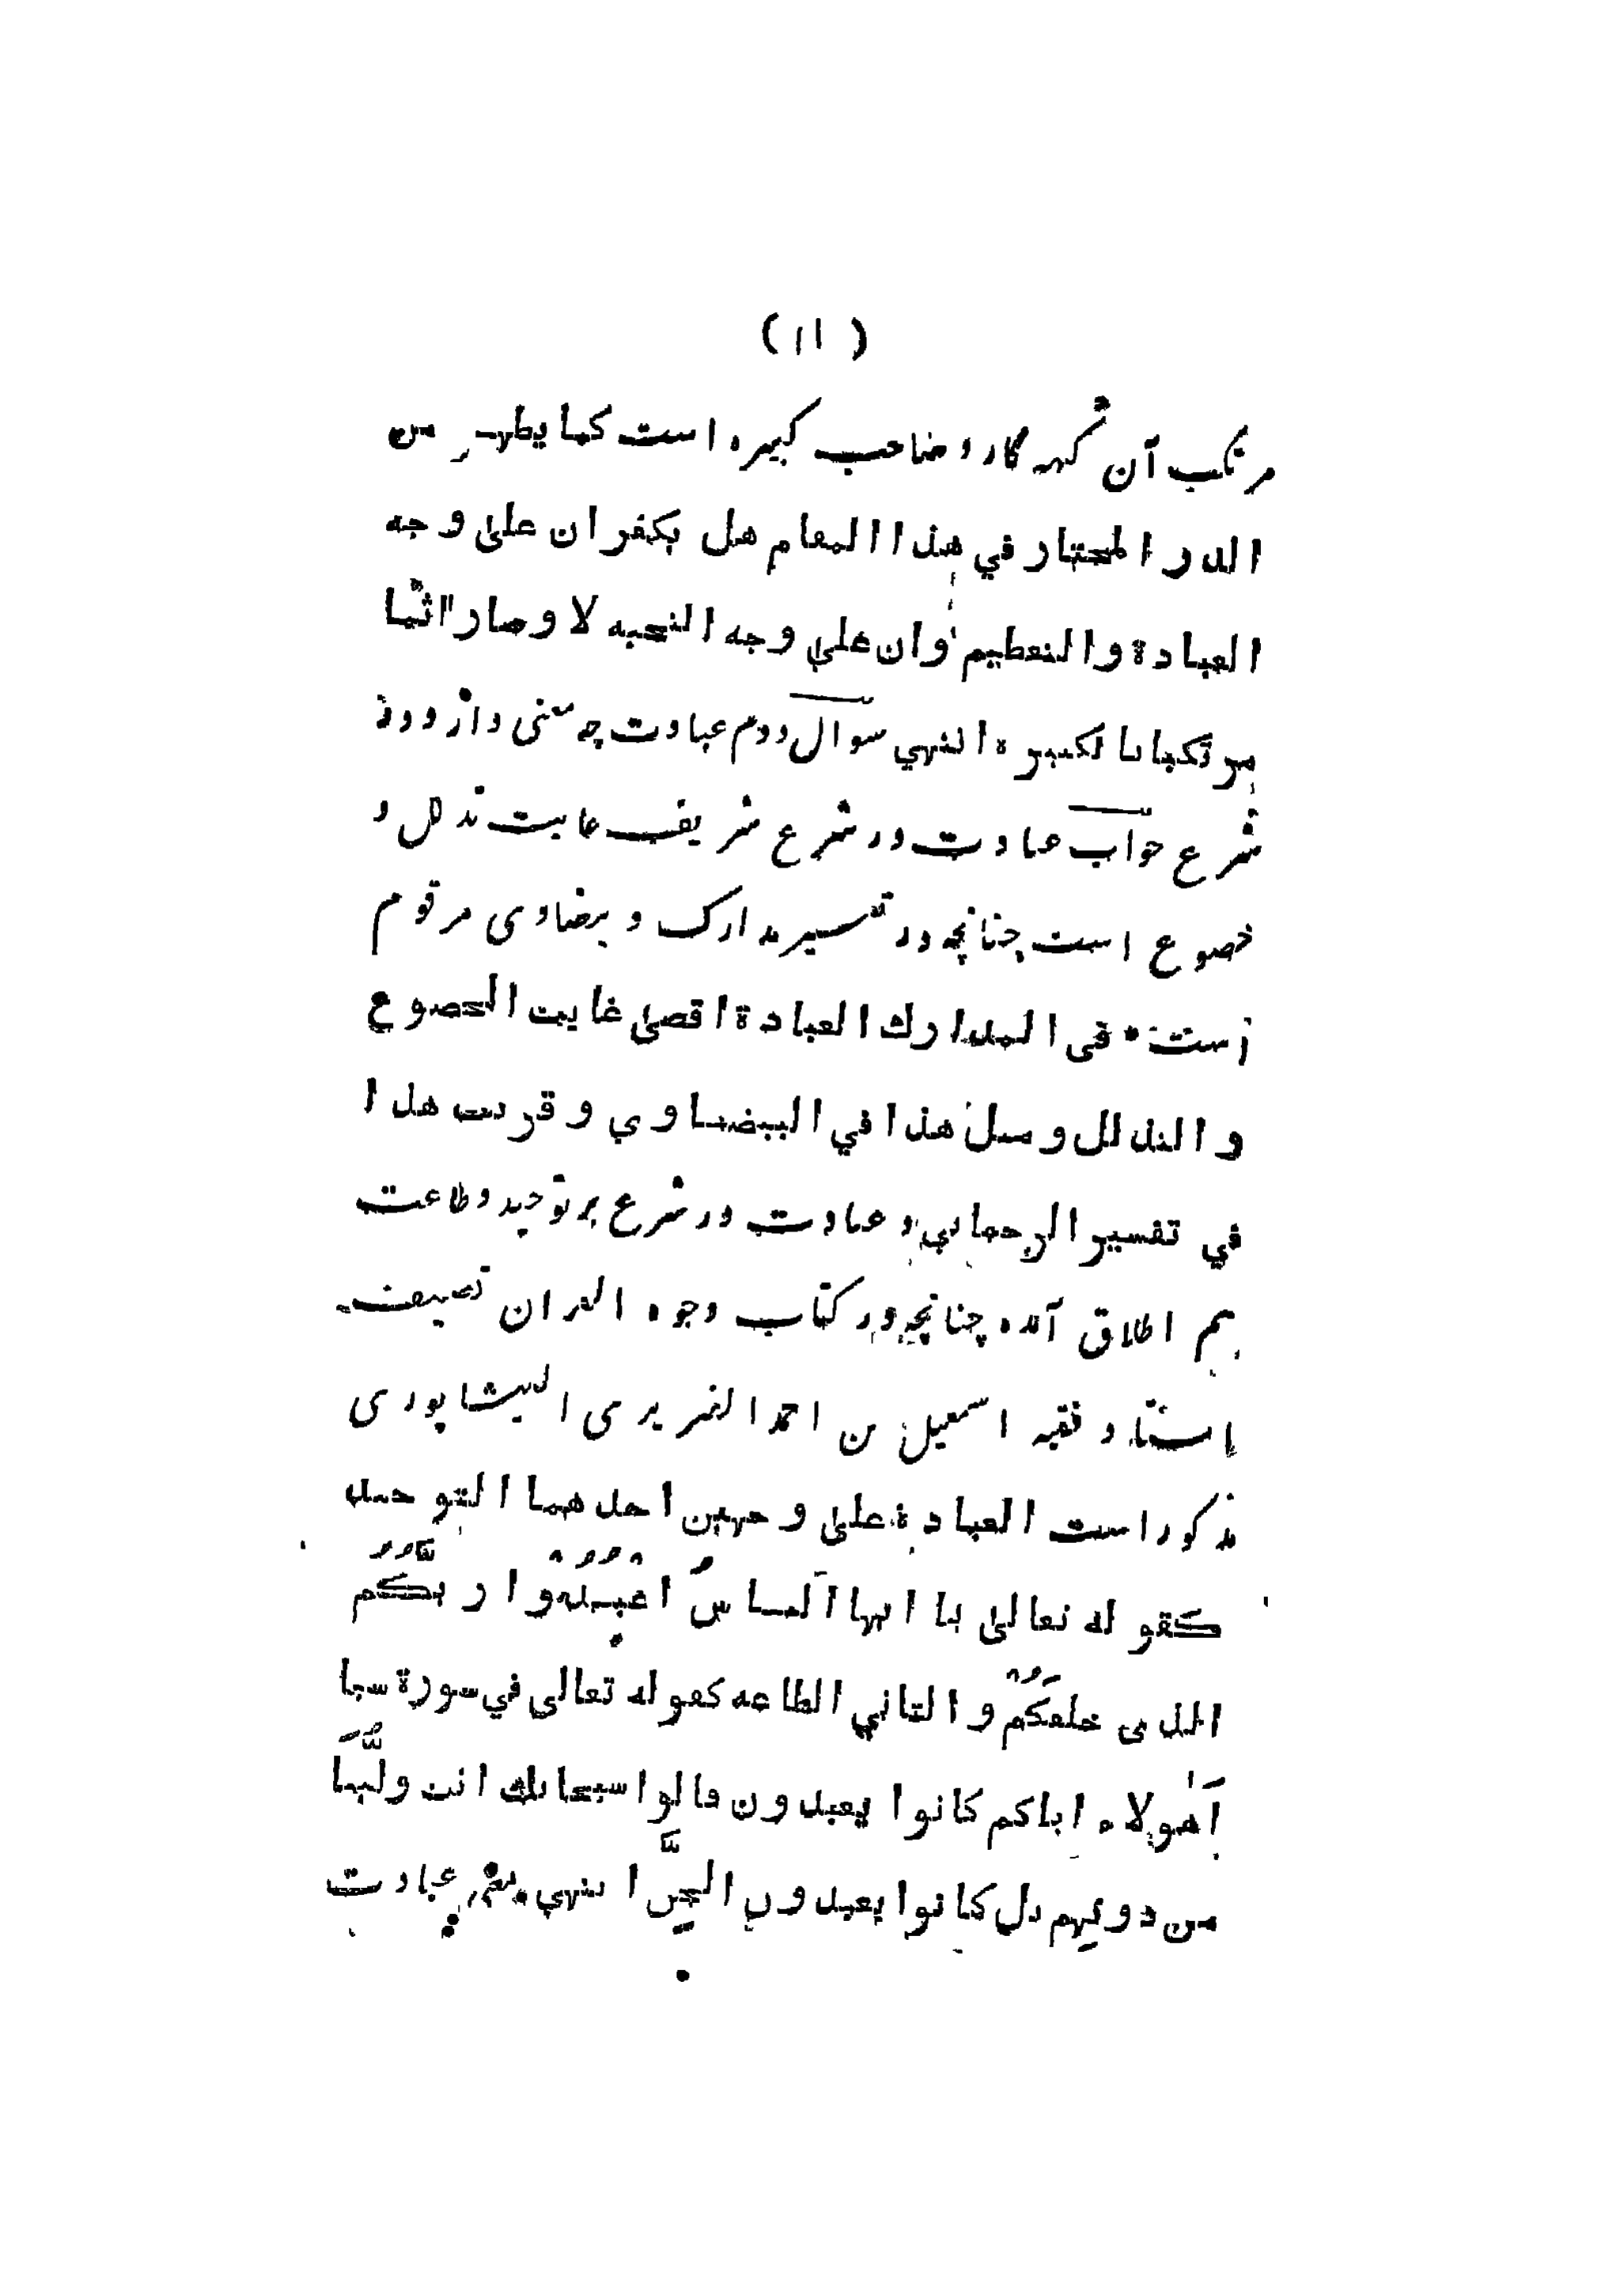 ( ۱۱ )
مرتکب آن گنهه گار و صاحب کبیره است کما یظهر من
الدر المختار في هذا المقام هل يكفر ان علىٰ وجه
العبادة والتعظيم وان علي وجه التحيه لا وصار اثما
مرتكبا بالكبيرة انتهي سوال دوم عبادت چه معنی دارد در
شرع جواب عبادت در شرع شریف غایت تذلل و
خضوع است چنانچه در تفسیر مدارک و بیضاوی مرقوم
است * في المدارك العبادة اقصىٰ غايت الخضوع
و التذلل و مثل هذا في البيضاوي و قريب هذا
في تفسير الرحماني و عبادت در شرع بر توحید و طاعت
هم اطلاق آمده چنانچه در کتاب وجوه القران تصنیف
استاد فقیه اسمعیل بن احمد الضریری النیشاپوری
مذکور است العبادة علىٰ وجهين احدهما التوحيد
كقوله تعالىٰ يا ايها الناسُ اعْبُدُوْا رَبَّكُمُ
الذي خلقَكُمْ و الثاني الطاعه كقوله تعالى في سورة سبا
اَهٰولاء اياكم كانوا يعبدون قالوا سبحانك انت ولِيُّنَا
من دونِهم بل كانوا يعبدون الجِنَّ انتهي عبادت